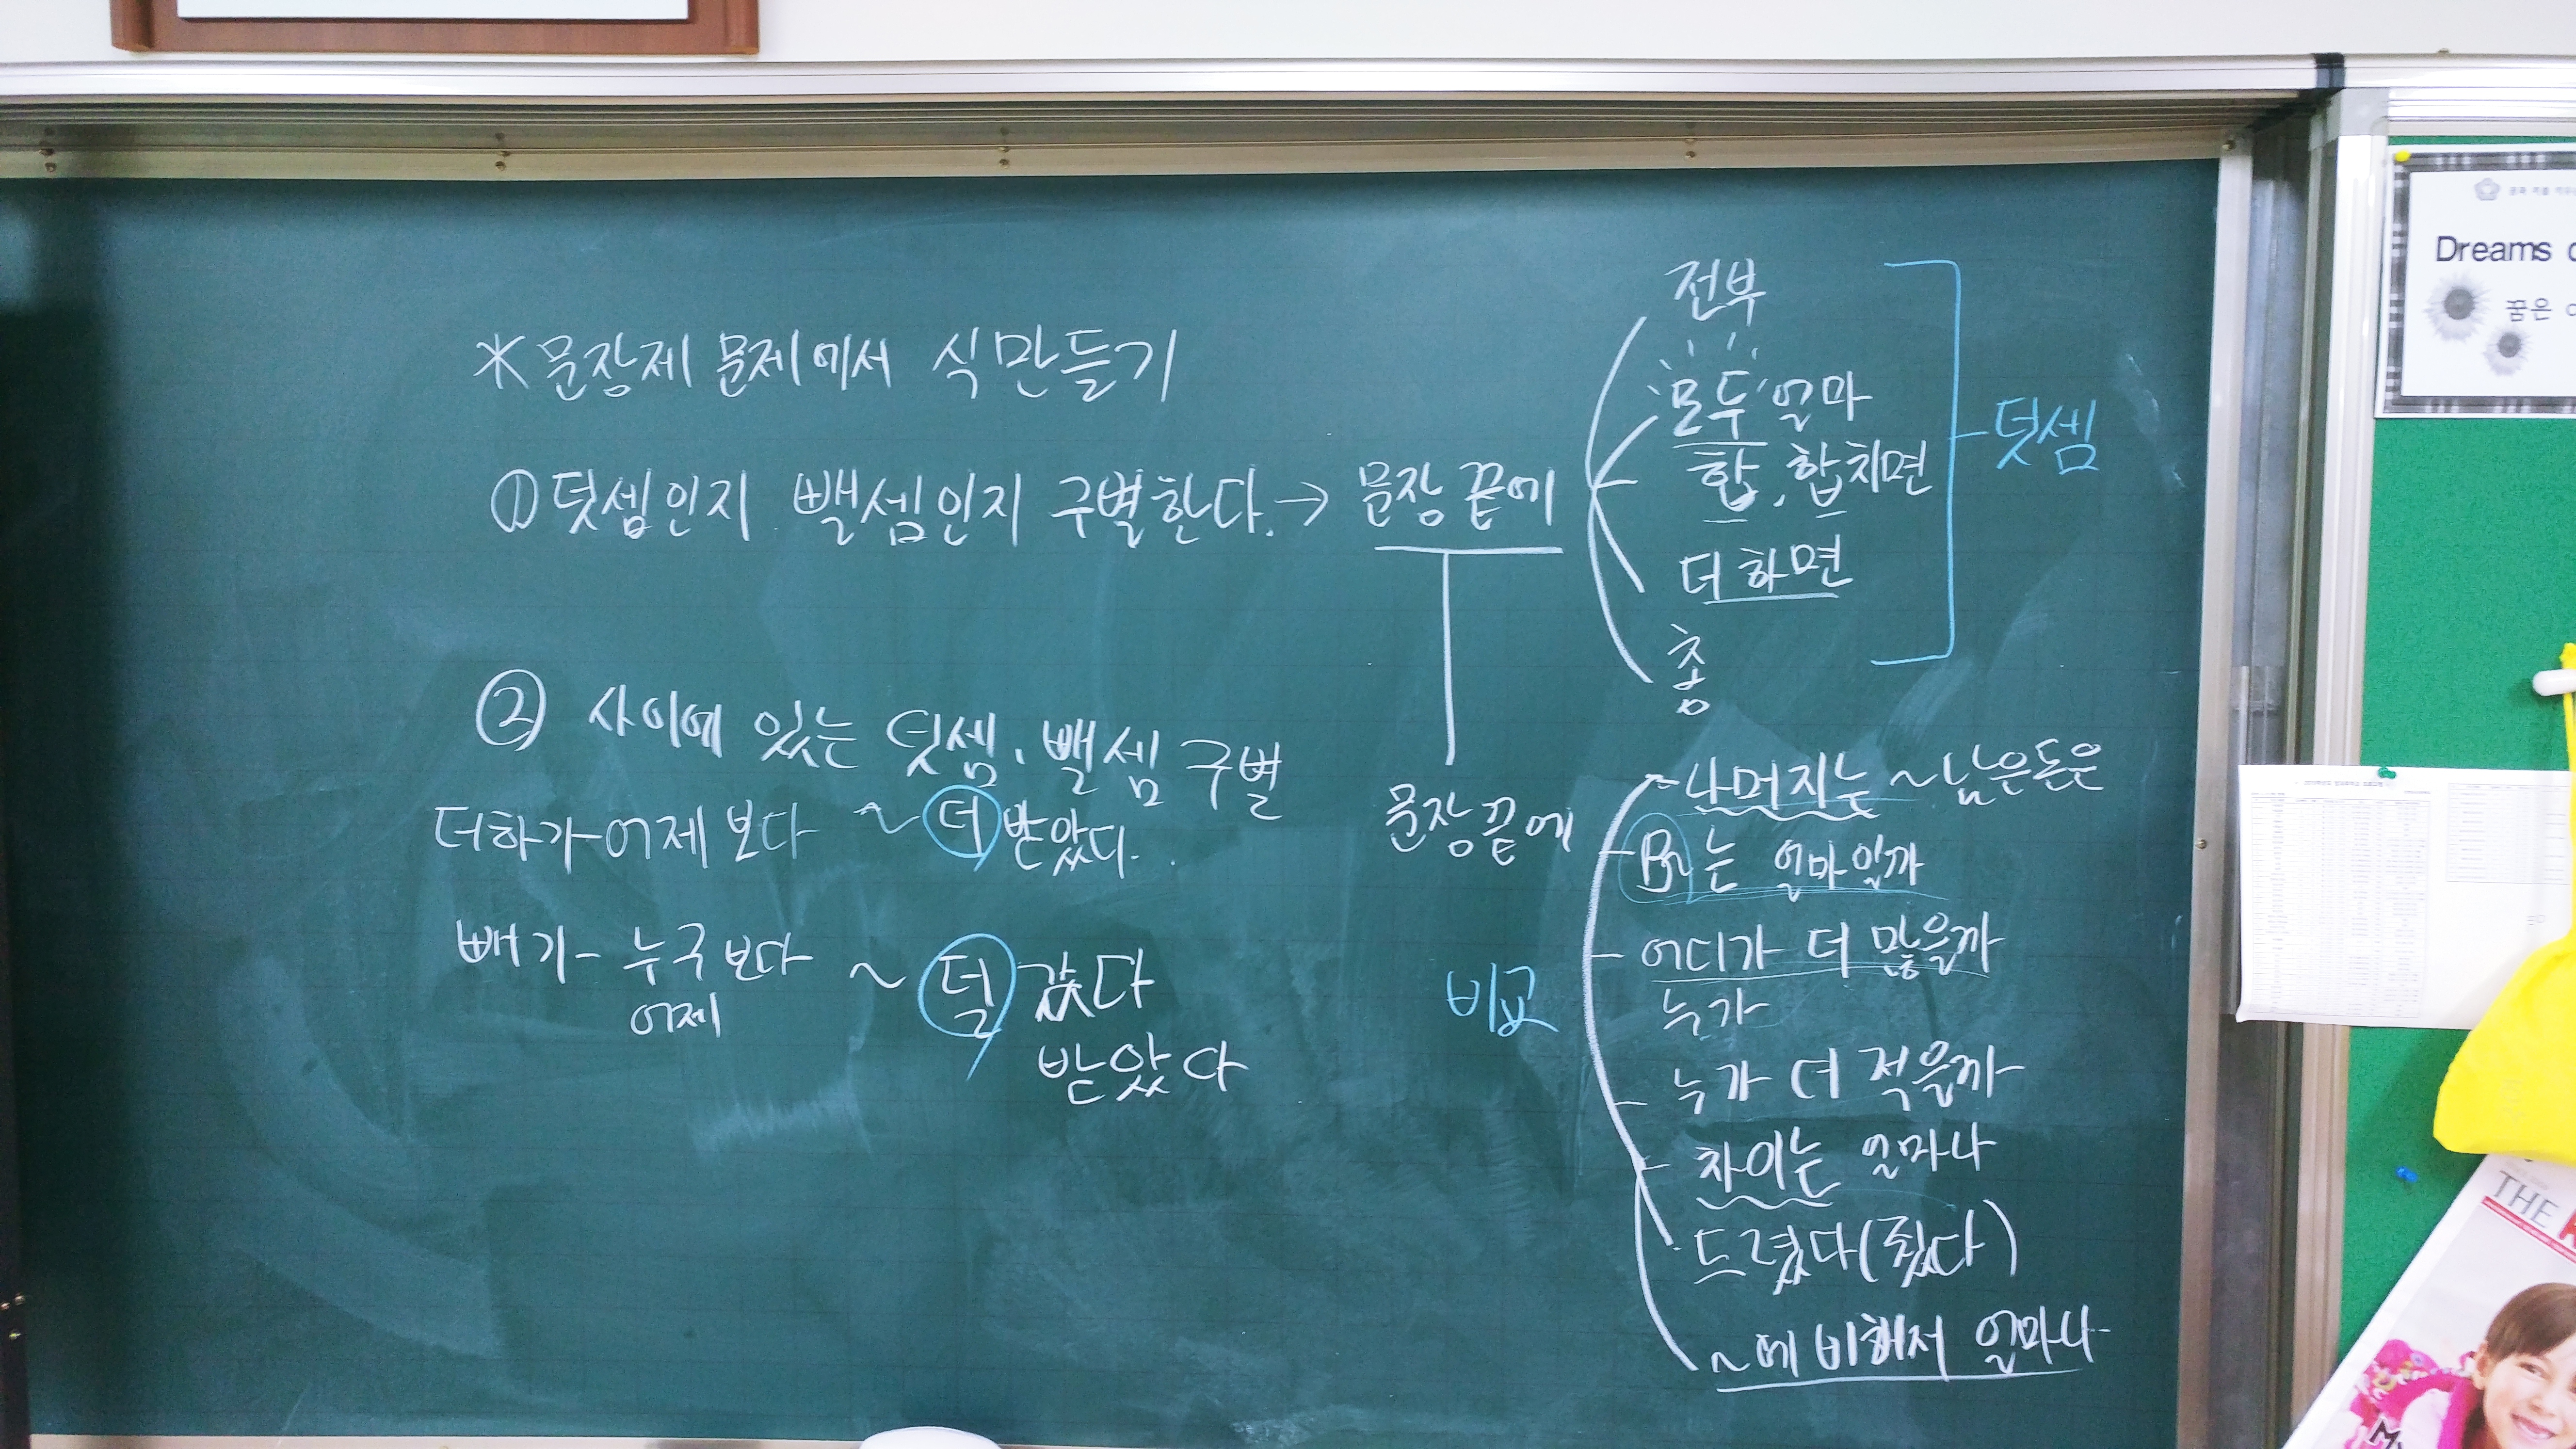 *문장제 문제에서 식만들기
① 덧셈인지 뺄셈인지 구별한다. → 문장 끝에
전부
모두 얼마
합, 합치면
더하면
총
덧셈
② 사이에 있는 덧셈, 뺄셈 구별
더하기-어제보다 ~ 더 받았다.
빼기- 누구보다 ~ 덜 갔다
어제
받았다
문장끝에
비교
~나머지는 ~남은돈은
B는 얼마일까
어디가 더 많을까
누가
누가 더 적을까
차이는 얼마나
드렸다(줬다)
~에 비해서 얼마나
Dreams
꿈은
THE